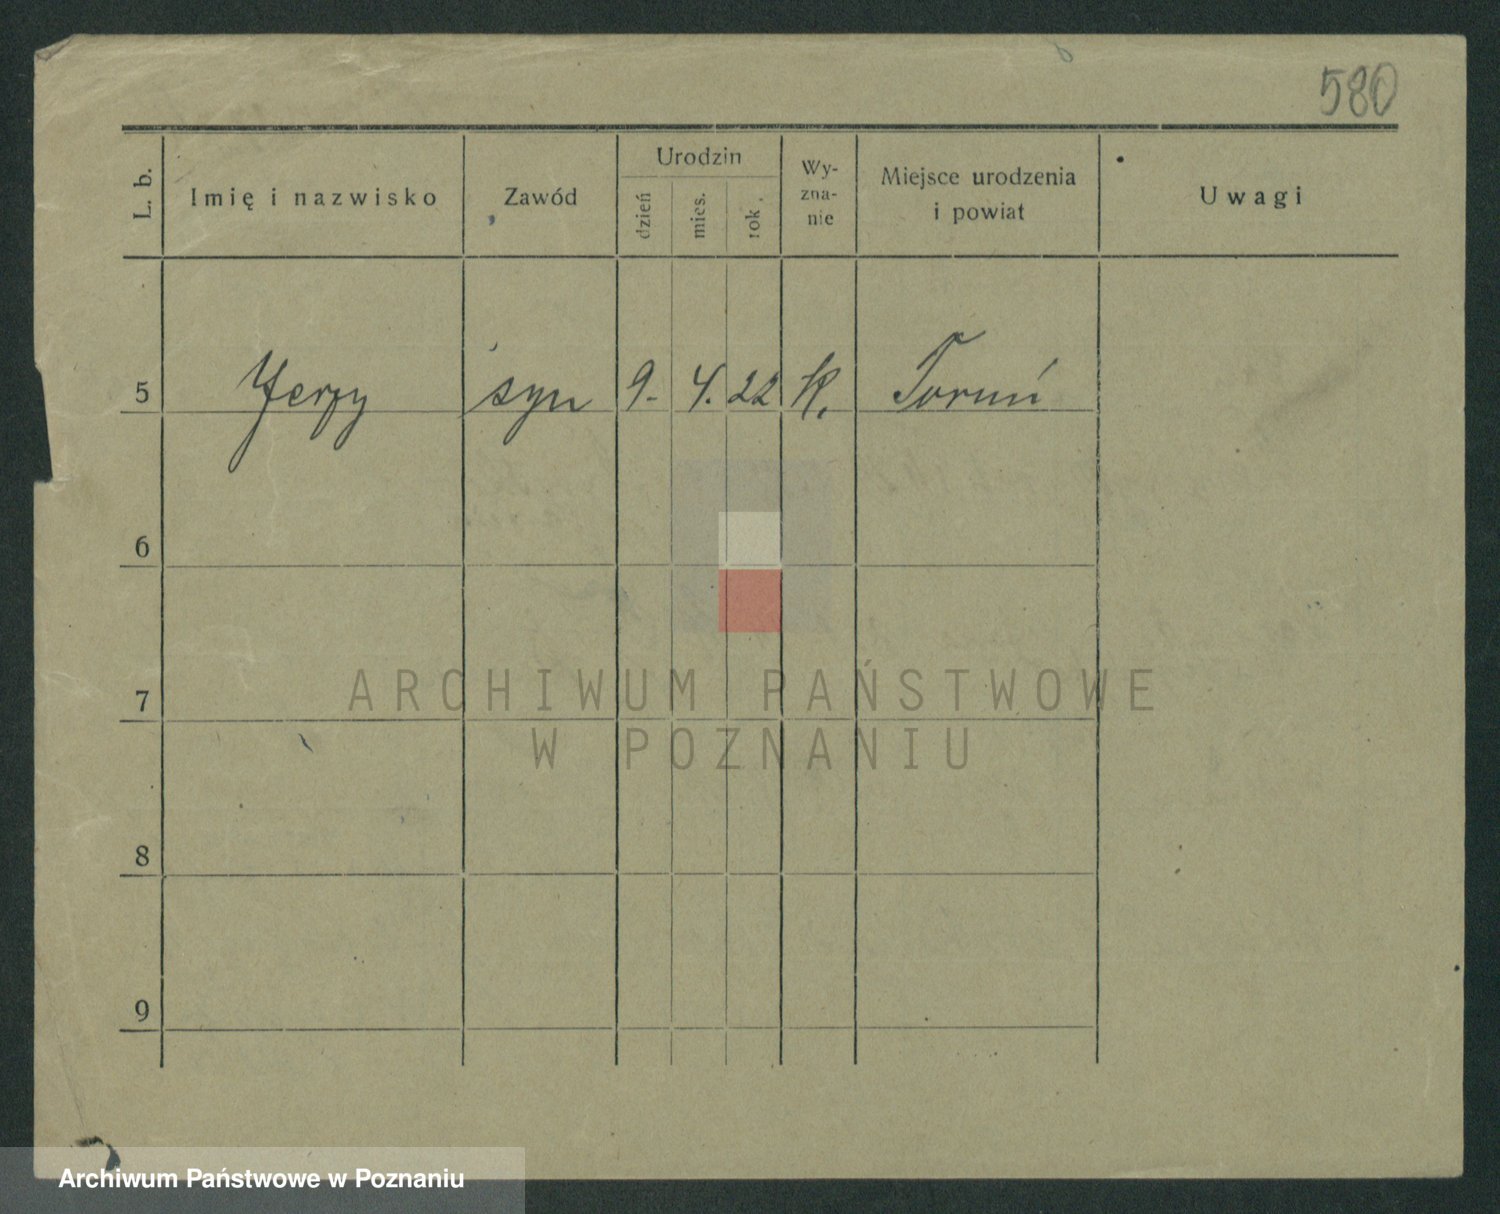 580
L. b. Imię i nazwisko Zawód Urodzin dzień mies. rok Wy-zna-nie Miejsce urodzenia i powiat Uwagi
5 Jerzy syn 9. 4. 22 K. Toruń
6
7
8
9
ARCHIWUM PAŃSTWOWE
W POZNANIU
Archiwum Państwowe w Poznaniu